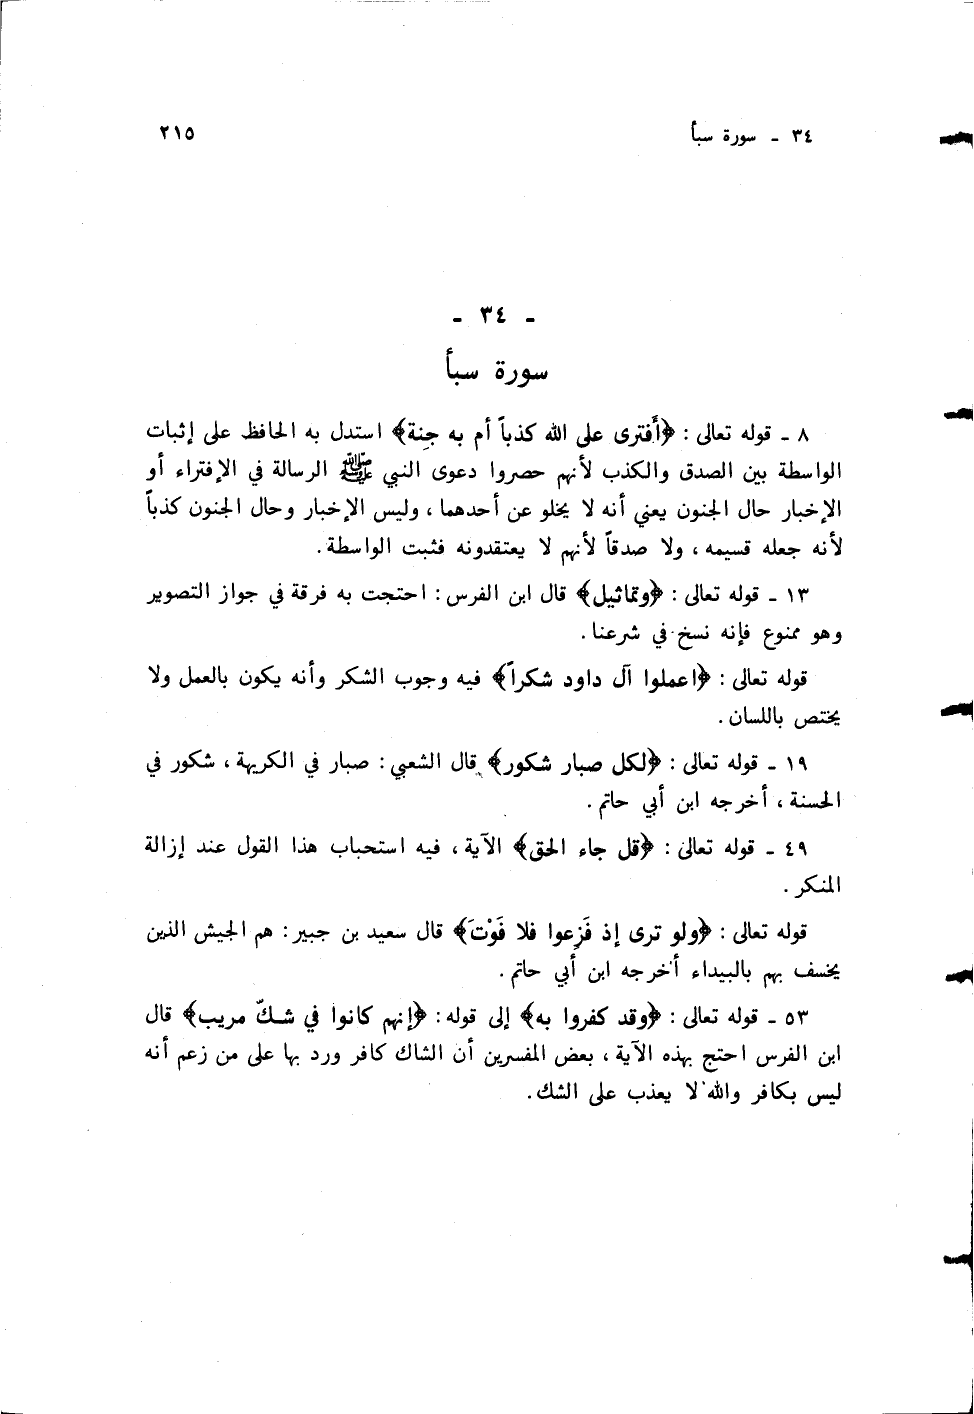 ٣٤ ـ سورة سبأ
٢١٥
ـ ٣٤ ـ
سورة سبأ
٨ ـ قوله تعالى : ﴿أَفترى على الله كذباً أم به جِنة﴾ استدل به الحافظ على إثبات
الواسطة بين الصدق والكذب لأنهم حصروا دعوى النبي ﷺ الرسالة في الإفتراء أو
الإخبار حال الجنون يعني أنه لا يخلو عن أحدهما ، وليس الإخبار وحال الجنون كذباً
لأنه جعله قسيمه ، ولا صدقاً لأنهم لا يعتقدونه فثبت الواسطة .
١٣ ـ قوله تعالى : ﴿وتماثيل﴾ قال ابن الفرس : احتجت به فرقة في جواز التصوير
وهو ممنوع فإنه نسخ في شرعنا .
قوله تعالى : ﴿اعملوا آل داود شكراً﴾ فيه وجوب الشكر وأنه يكون بالعمل ولا
يختص باللسان .
١٩ ـ قوله تعالى : ﴿لكل صبار شكور﴾ قال الشعبي : صبار في الكريهة ، شكور في
الحسنة ، أخرجه ابن أبي حاتم .
٤٩ ـ قوله تعالى : ﴿قل جاء الحق﴾ الآية ، فيه استحباب هذا القول عند إزالة
المنكر .
قوله تعالى : ﴿ولو ترى إذ فَزِعوا فلا فَوْتَ﴾ قال سعيد بن جبير : هم الجيش الذين
يخسف بهم بالبيداء أخرجه ابن أبي حاتم .
٥٣ ـ قوله تعالى : ﴿وقد كفروا به﴾ إلى قوله : ﴿إنهم كانوا في شكّ مريب﴾ قال
ابن الفرس احتج بهذه الآية ، بعض المفسرين أن الشاك كافر ورد بها على من زعم أنه
ليس بكافر والله لا يعذب على الشك .